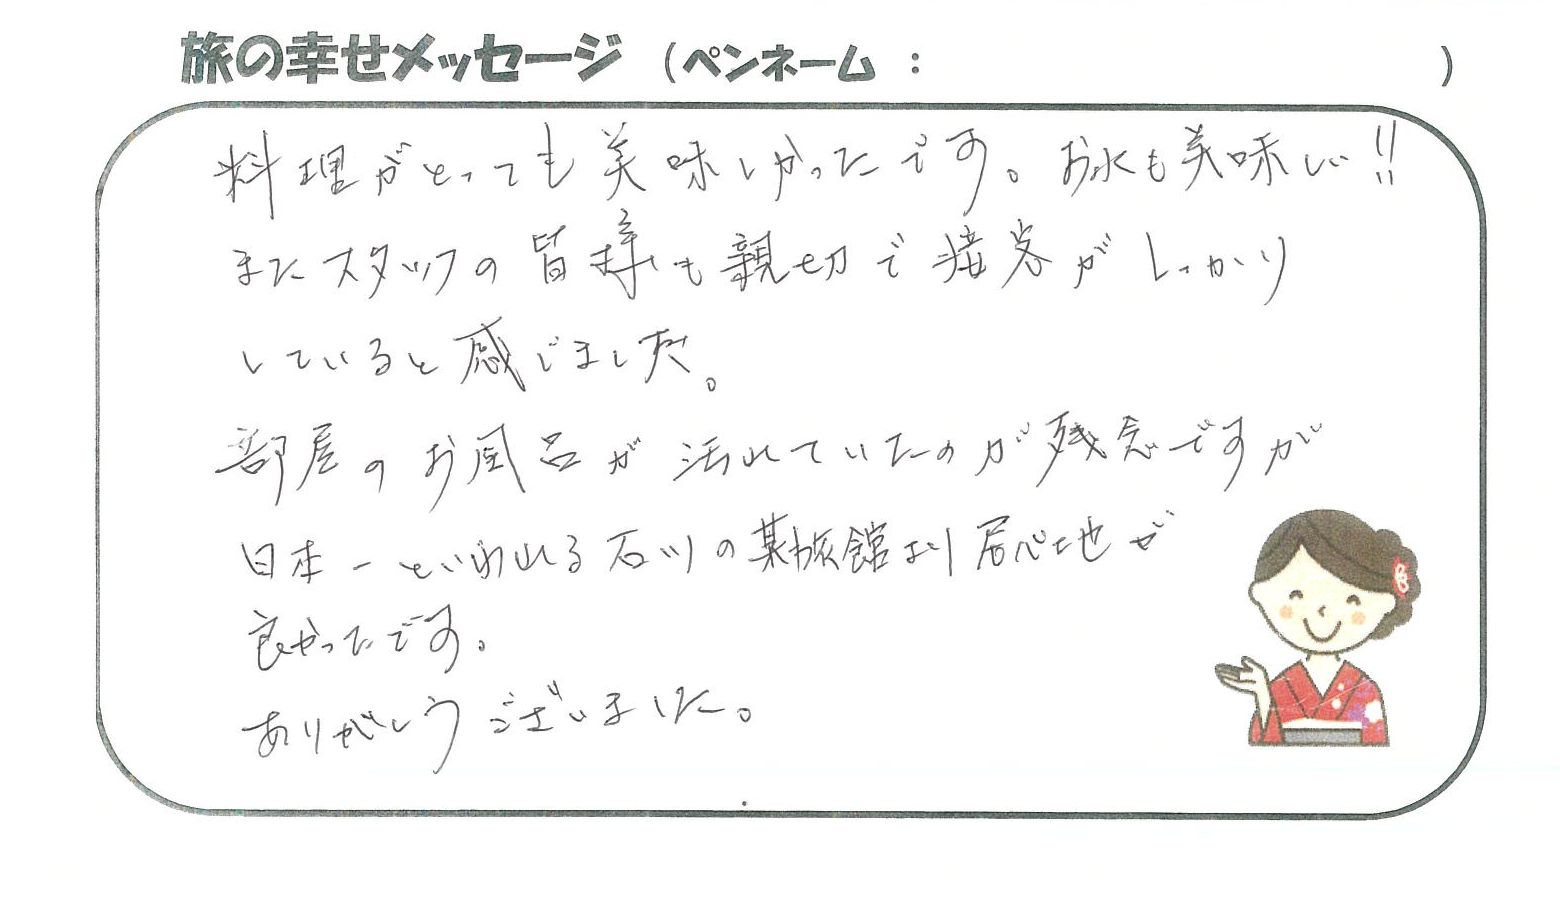 旅の幸せメッセージ (ペンネーム : )
料理がとっても美味しかったです。お水も美味しい!!
またスタッフの皆様も親切で接客がしっかり
していると感じました。
部屋のお風呂が汚れていたのが残念ですが
日本一といわれる石川の某旅館より居心地が
良かったです。
ありがとうございました。